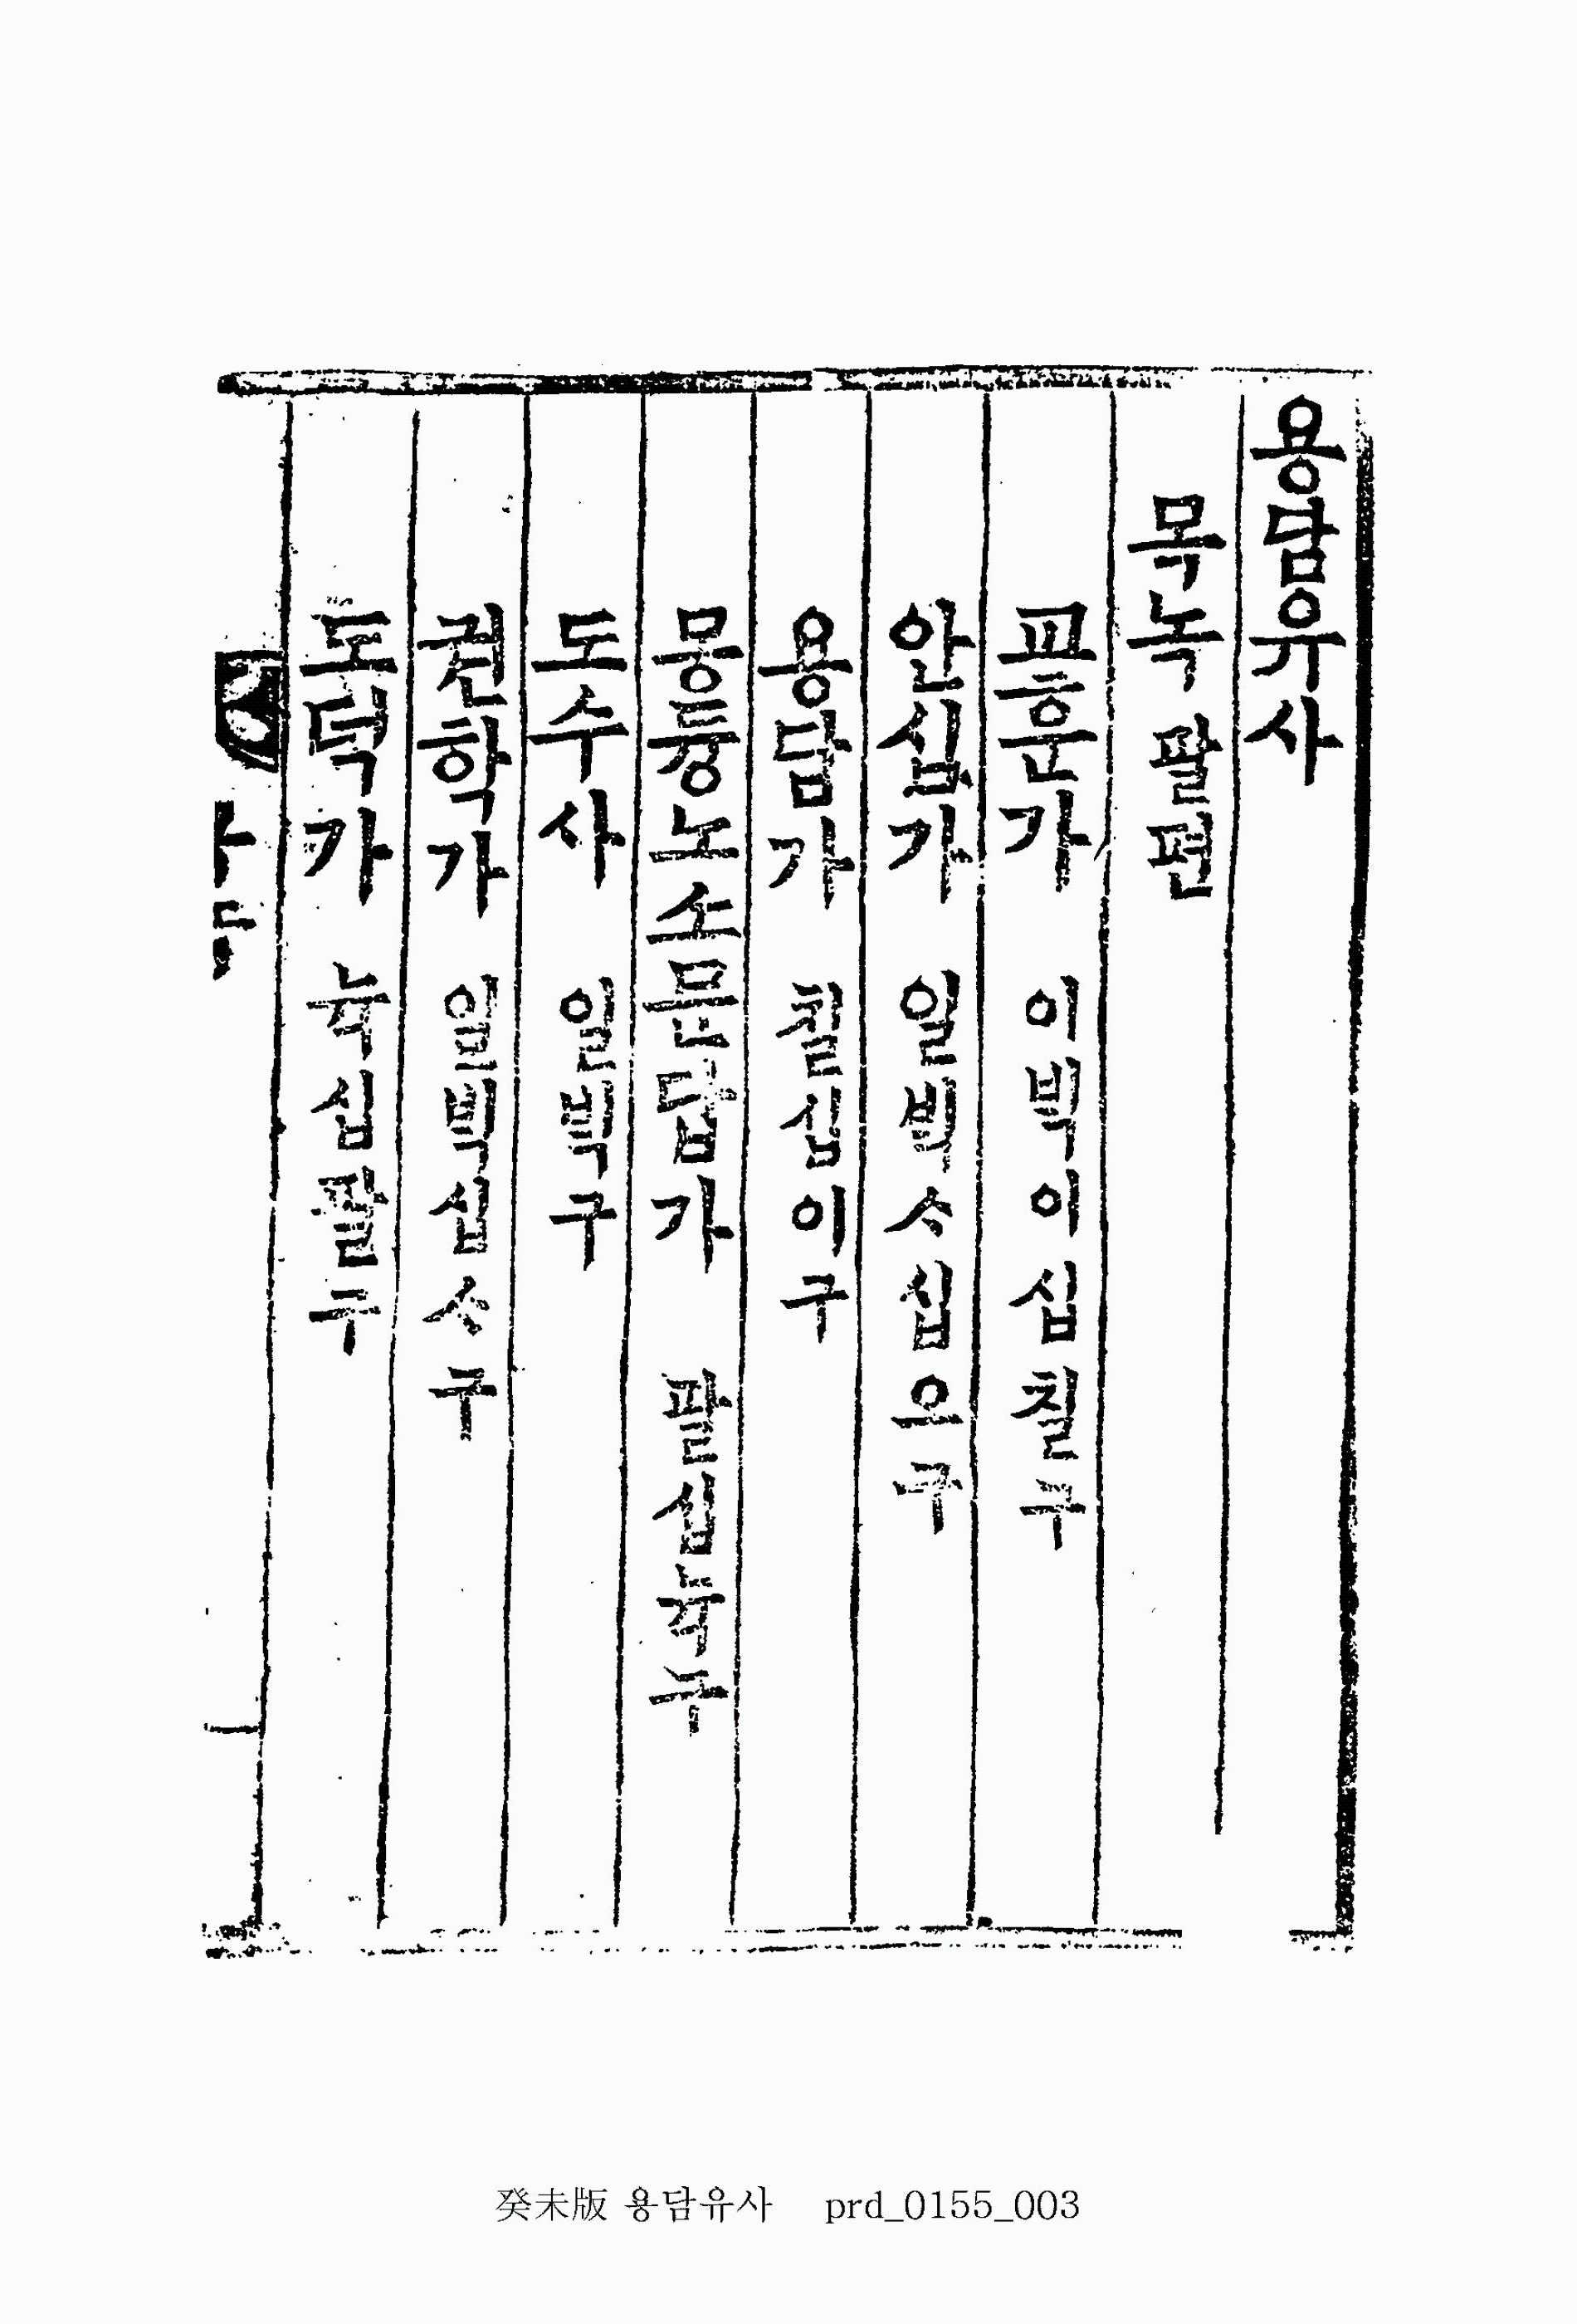 용담유사
목녹 팔편
교훈가 이빅이십칠구
안심가 일빅ᄉᆞ십오구
용담가 칠십이구
몽듕노소문답가 팔십뉵구
도수사 일빅구
권학가 일빅십ᄉᆞ구
도덕가 뉵십팔구
癸未版 용담유사 prd_0155_003